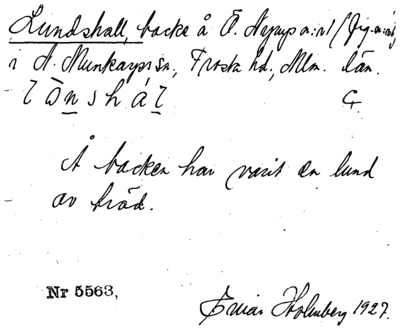 Lundshall, backe å Ö. Heprups n:r 1 / (Jfg. n:r 5)
i N. Munkarps sn, Frosta hd, Mlm. län.
l ɔ̀n s h á l G
Å backen har varit en lund
av träd.
Nr 5563,
Einar Holmberg 1927.